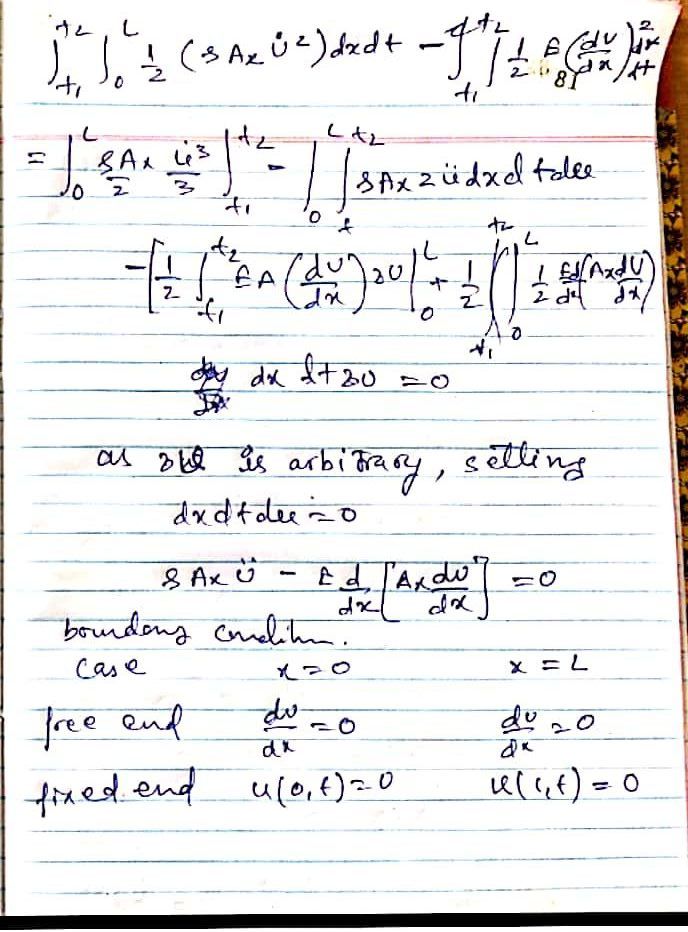 ∫_{t1}^{t2} ∫_0^L 1/2 (ρAx u̇²) dx dt - ∫_{t1}^{t2} ∫ 1/2 E (du/dx)² dx dt
= ∫_0^L ρAx/2 u̇³/3 |_{t1}^{t2} - ∫_0^L ∫_t^{t2} ρAx 2 ü dx dt du
-[1/2 ∫_{t1}^{t2} EA (du/dx) ∂U |_0^L + 1/2 ∫_{t1}^{t2} ∫_0^L 1/2 E d/dx (Ax dU/dx)
dx dt ∂U = 0
as ∂u is arbitrary, setting
dx dt du = 0
ρAx ü - E d/dx [Ax du/dx] = 0
boundary condition.
case x=0 x=L
free end du/dx = 0 du/dx = 0
fixed end u(0,t)=0 u(l,t)=0